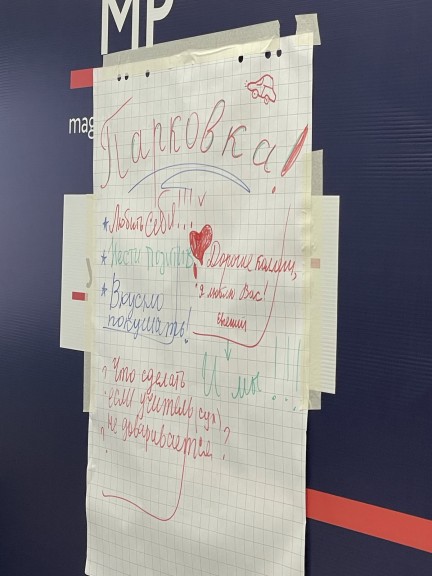 МР
mag
Парковка!
* Любить себя!!!
* Нести позитив
* Вкусно
покушать!
Дорогие коллеги,
я люблю Вас!
И мы !!!
? Что сделать
если учитель (сур)
? не договаривается?